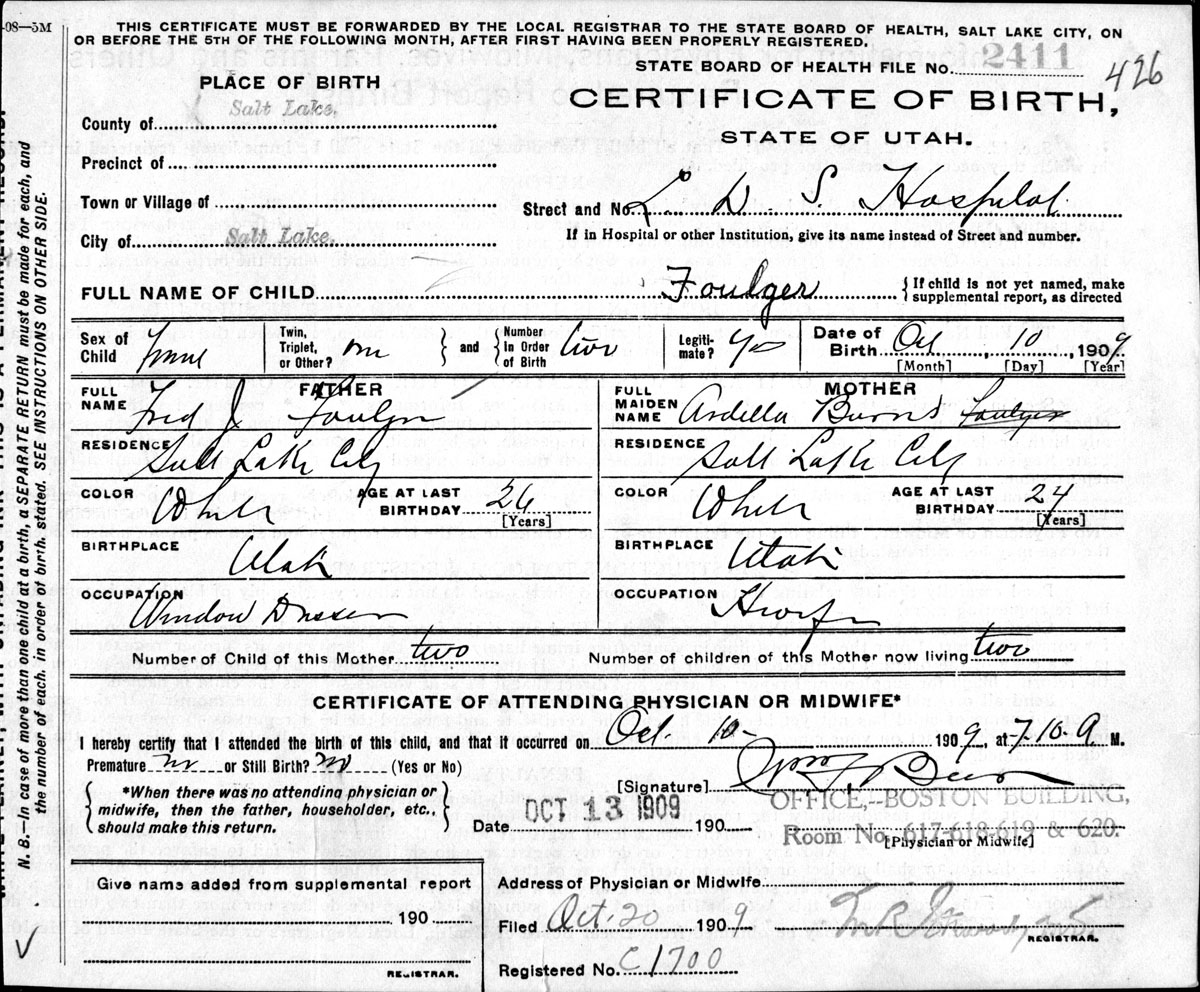 -08—5M
THIS CERTIFICATE MUST BE FORWARDED BY THE LOCAL REGISTRAR TO THE STATE BOARD OF HEALTH, SALT LAKE CITY, ON
OR BEFORE THE 5TH OF THE FOLLOWING MONTH, AFTER FIRST HAVING BEEN PROPERLY REGISTERED.
STATE BOARD OF HEALTH FILE No. 2411
426
PLACE OF BIRTH
CERTIFICATE OF BIRTH,
STATE OF UTAH.
County of Salt Lake.
Precinct of
Town or Village of
Street and No. L. D. S. Hospital
City of Salt Lake.
If in Hospital or other Institution, give its name instead of Street and number.
FULL NAME OF CHILD Foulger { If child is not yet named, make supplemental report, as directed
Sex of Child | Twin, Triplet, or Other? one } and { Number In Order of Birth two | Legiti-mate? yes | Date of Birth Oct, 10, 1909
[Month] [Day] [Year]
FATHER MOTHER
FULL NAME Fred J Foulger
FULL MAIDEN NAME Ardella Burns Foulger
RESIDENCE Salt Lake City
RESIDENCE Salt Lake City
COLOR White AGE AT LAST BIRTHDAY 26 [Years]
COLOR White AGE AT LAST BIRTHDAY 24 [Years]
BIRTHPLACE Utah
BIRTHPLACE Utah
OCCUPATION Window Dresser
OCCUPATION Hwife
Number of Child of this Mother two
Number of children of this Mother now living two
CERTIFICATE OF ATTENDING PHYSICIAN OR MIDWIFE*
I hereby certify that I attended the birth of this child, and that it occurred on Oct. 10- 1909, at 7.10 a. M.
Premature no or Still Birth? no (Yes or No)
*When there was no attending physician or
midwife, then the father, householder, etc.,
should make this return.
[Signature] Wm F Beer
OFFICE,--BOSTON BUILDING,
Date OCT 13 1909 190
Room No. 617-618-619 & 620.
[Physician or Midwife]
Give name added from supplemental report
190
REGISTRAR.
Address of Physician or Midwife
Filed Oct. 20 1909
REGISTRAR.
Registered No. C1700
N. B.—In case of more than one child at a birth, a SEPARATE RETURN must be made for each, and
the number of each, in order of birth, stated. SEE INSTRUCTIONS ON OTHER SIDE.